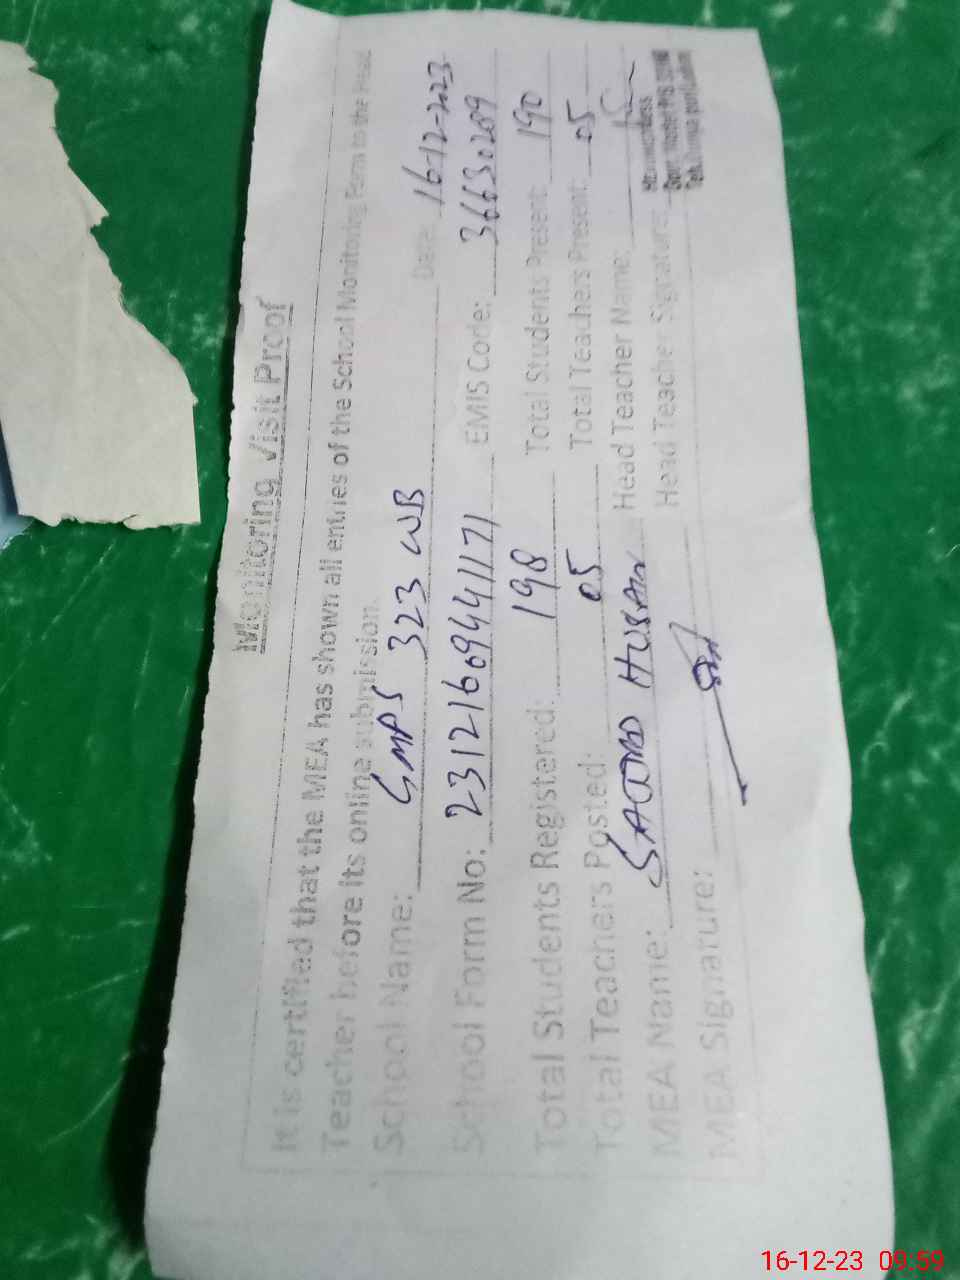 Monitoring Visit Proof
It is certified that the MEA has shown all entries of the School Monitoring Form to the Head
Teacher before its online submission.
School Name: GMPS 323 WB Date: 16-12-2023
School Form No: 23121609441171 EMIS Code: 36630209
Total Students Registered: 198 Total Students Present: 190
Total Teachers Posted: 05 Total Teachers Present: 05
MEA Name: SAJJAD HUSAIN Head Teacher Name:
MEA Signature: Head Teacher Signature:
Headmistress
16-12-23 09:59